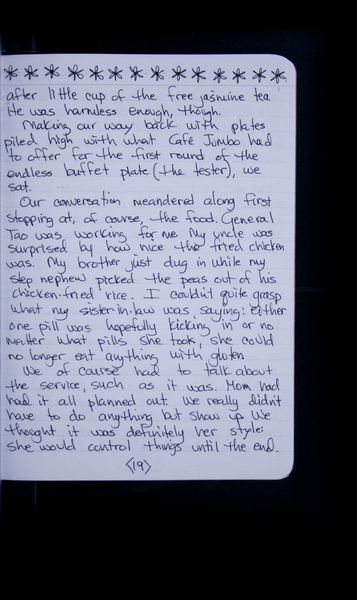 after little cup of the free jasmine tea
He was harmless enough, though.
Making our way back with plates
piled high with what Café Jumbo had
to offer for the first round of the
endless buffet plate (the tester), we
sat.
Our conversation meandered along first
stopping at, of course, the food. General
Tao was working for me. My uncle was
surprised by how nice the fried chicken
was. My brother just dug in while my
step nephew picked the peas out of his
chicken-fried rice. I couldn't quite grasp
what my sister-in-law was saying: either
one pill was hopefully kicking in or no
matter what pills she took, she could
no longer eat anything with gluten
We of course had to talk about
the service, such as it was. Mom had
had it all planned out. We really didn't
have to do anything but show up. We
thought it was definitely her style:
she would control things until the end.
<19>